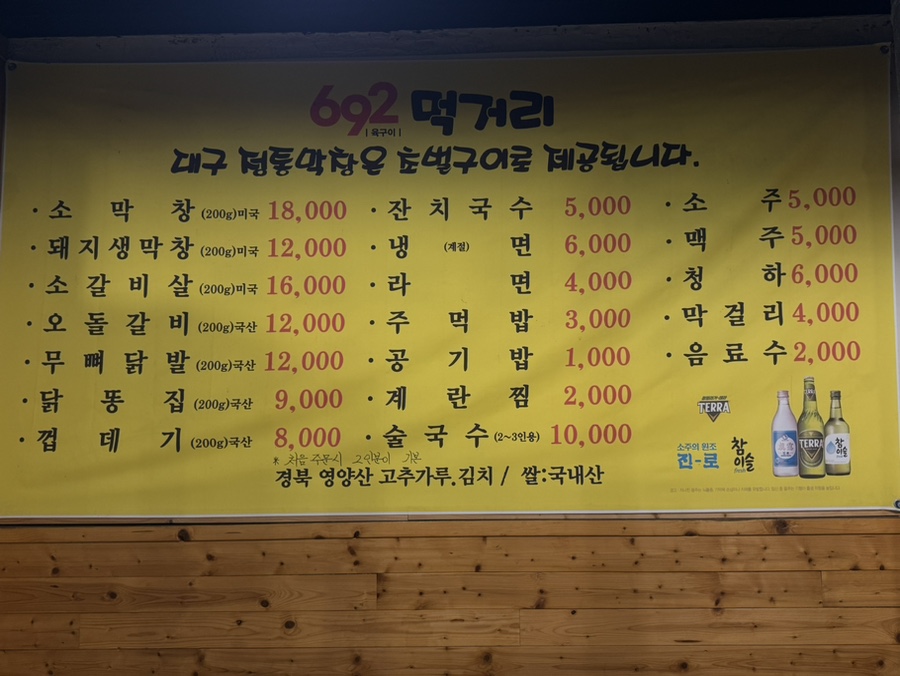 692 먹거리
|육구이|
대구 전통막창은 초벌구이로 제공됩니다.
·소 막 창 (200g)미국 18,000
·돼지생막창 (200g)미국 12,000
·소갈비살 (200g)미국 16,000
·오돌갈비 (200g)국산 12,000
·무뼈닭발 (200g)국산 12,000
·닭 똥 집 (200g)국산 9,000
·껍 데 기 (200g)국산 8,000
·잔치국수 5,000
·냉 (계절) 면 6,000
·라 면 4,000
·주 먹 밥 3,000
·공 기 밥 1,000
·계 란 찜 2,000
·술국수 (2~3인용) 10,000
·소 주 5,000
·맥 주 5,000
·청 하 6,000
·막걸리 4,000
·음료수 2,000
* 처음 주문시 2인분이 기본
경북 영양산 고추가루.김치 / 쌀:국내산
TERRA
소주의 원조
진-로
참이슬
fresh
TERRA
참이슬